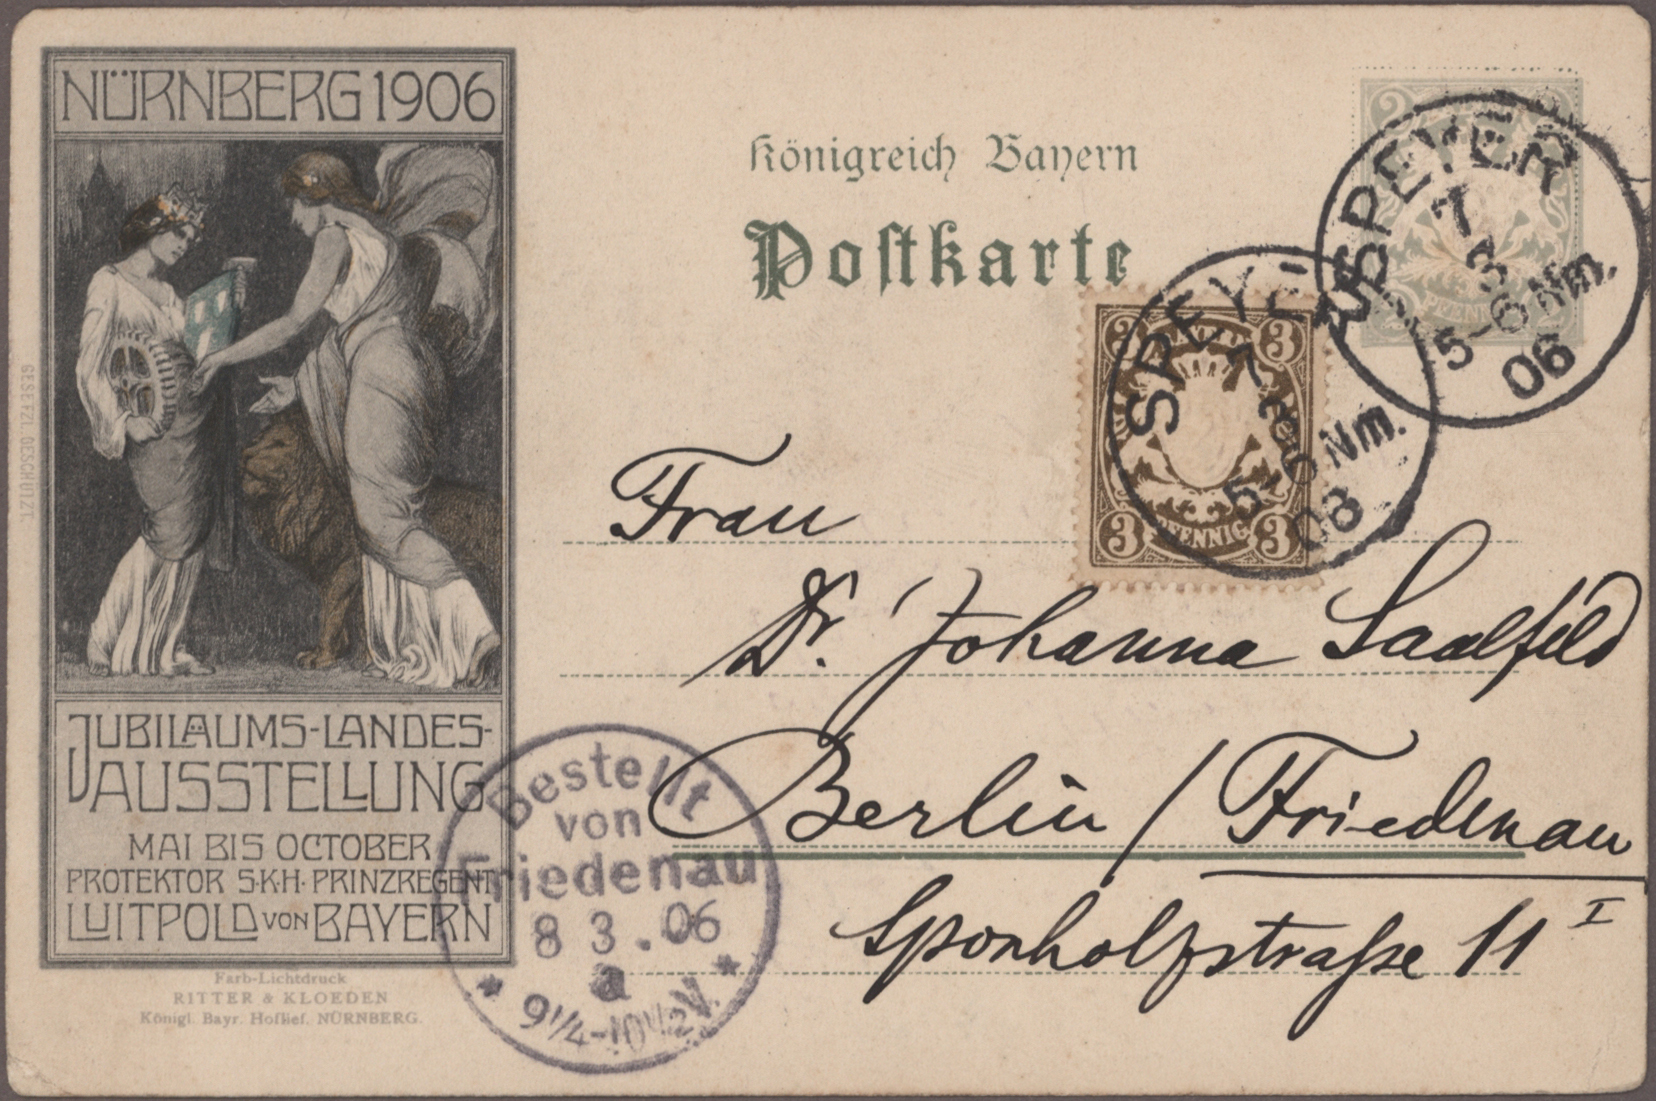 NÜRNBERG 1906
JUBILÄUMS-LANDES-
AUSSTELLUNG
MAI BIS OCTOBER
PROTEKTOR S·K·H· PRINZREGENT
LUITPOLD VON BAYERN
GESETZL. GESCHÜTZT.
Farb-Lichtdruck
RITTER & KLOEDEN
Königl. Bayr. Hoflief. NÜRNBERG.
Königreich Bayern
Postkarte
2
PFENNIG
SPEYER
7
3
5-6 Nm.
06
3 3
3 PFENNIG 3
SPEYER
7
5-6 Nm.
Frau
Dr. Johanna Saalfeld
Berlin / Friedenau
Sponholzstraße 11 I
Bestellt
von
Friedenau
8 3.06
a
* 9 1/4-10 1/2 V. *